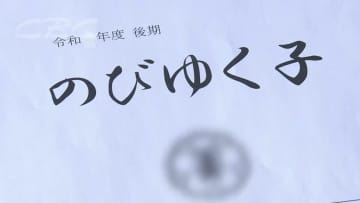 CBC
令和　年度 後期
のびゆく子